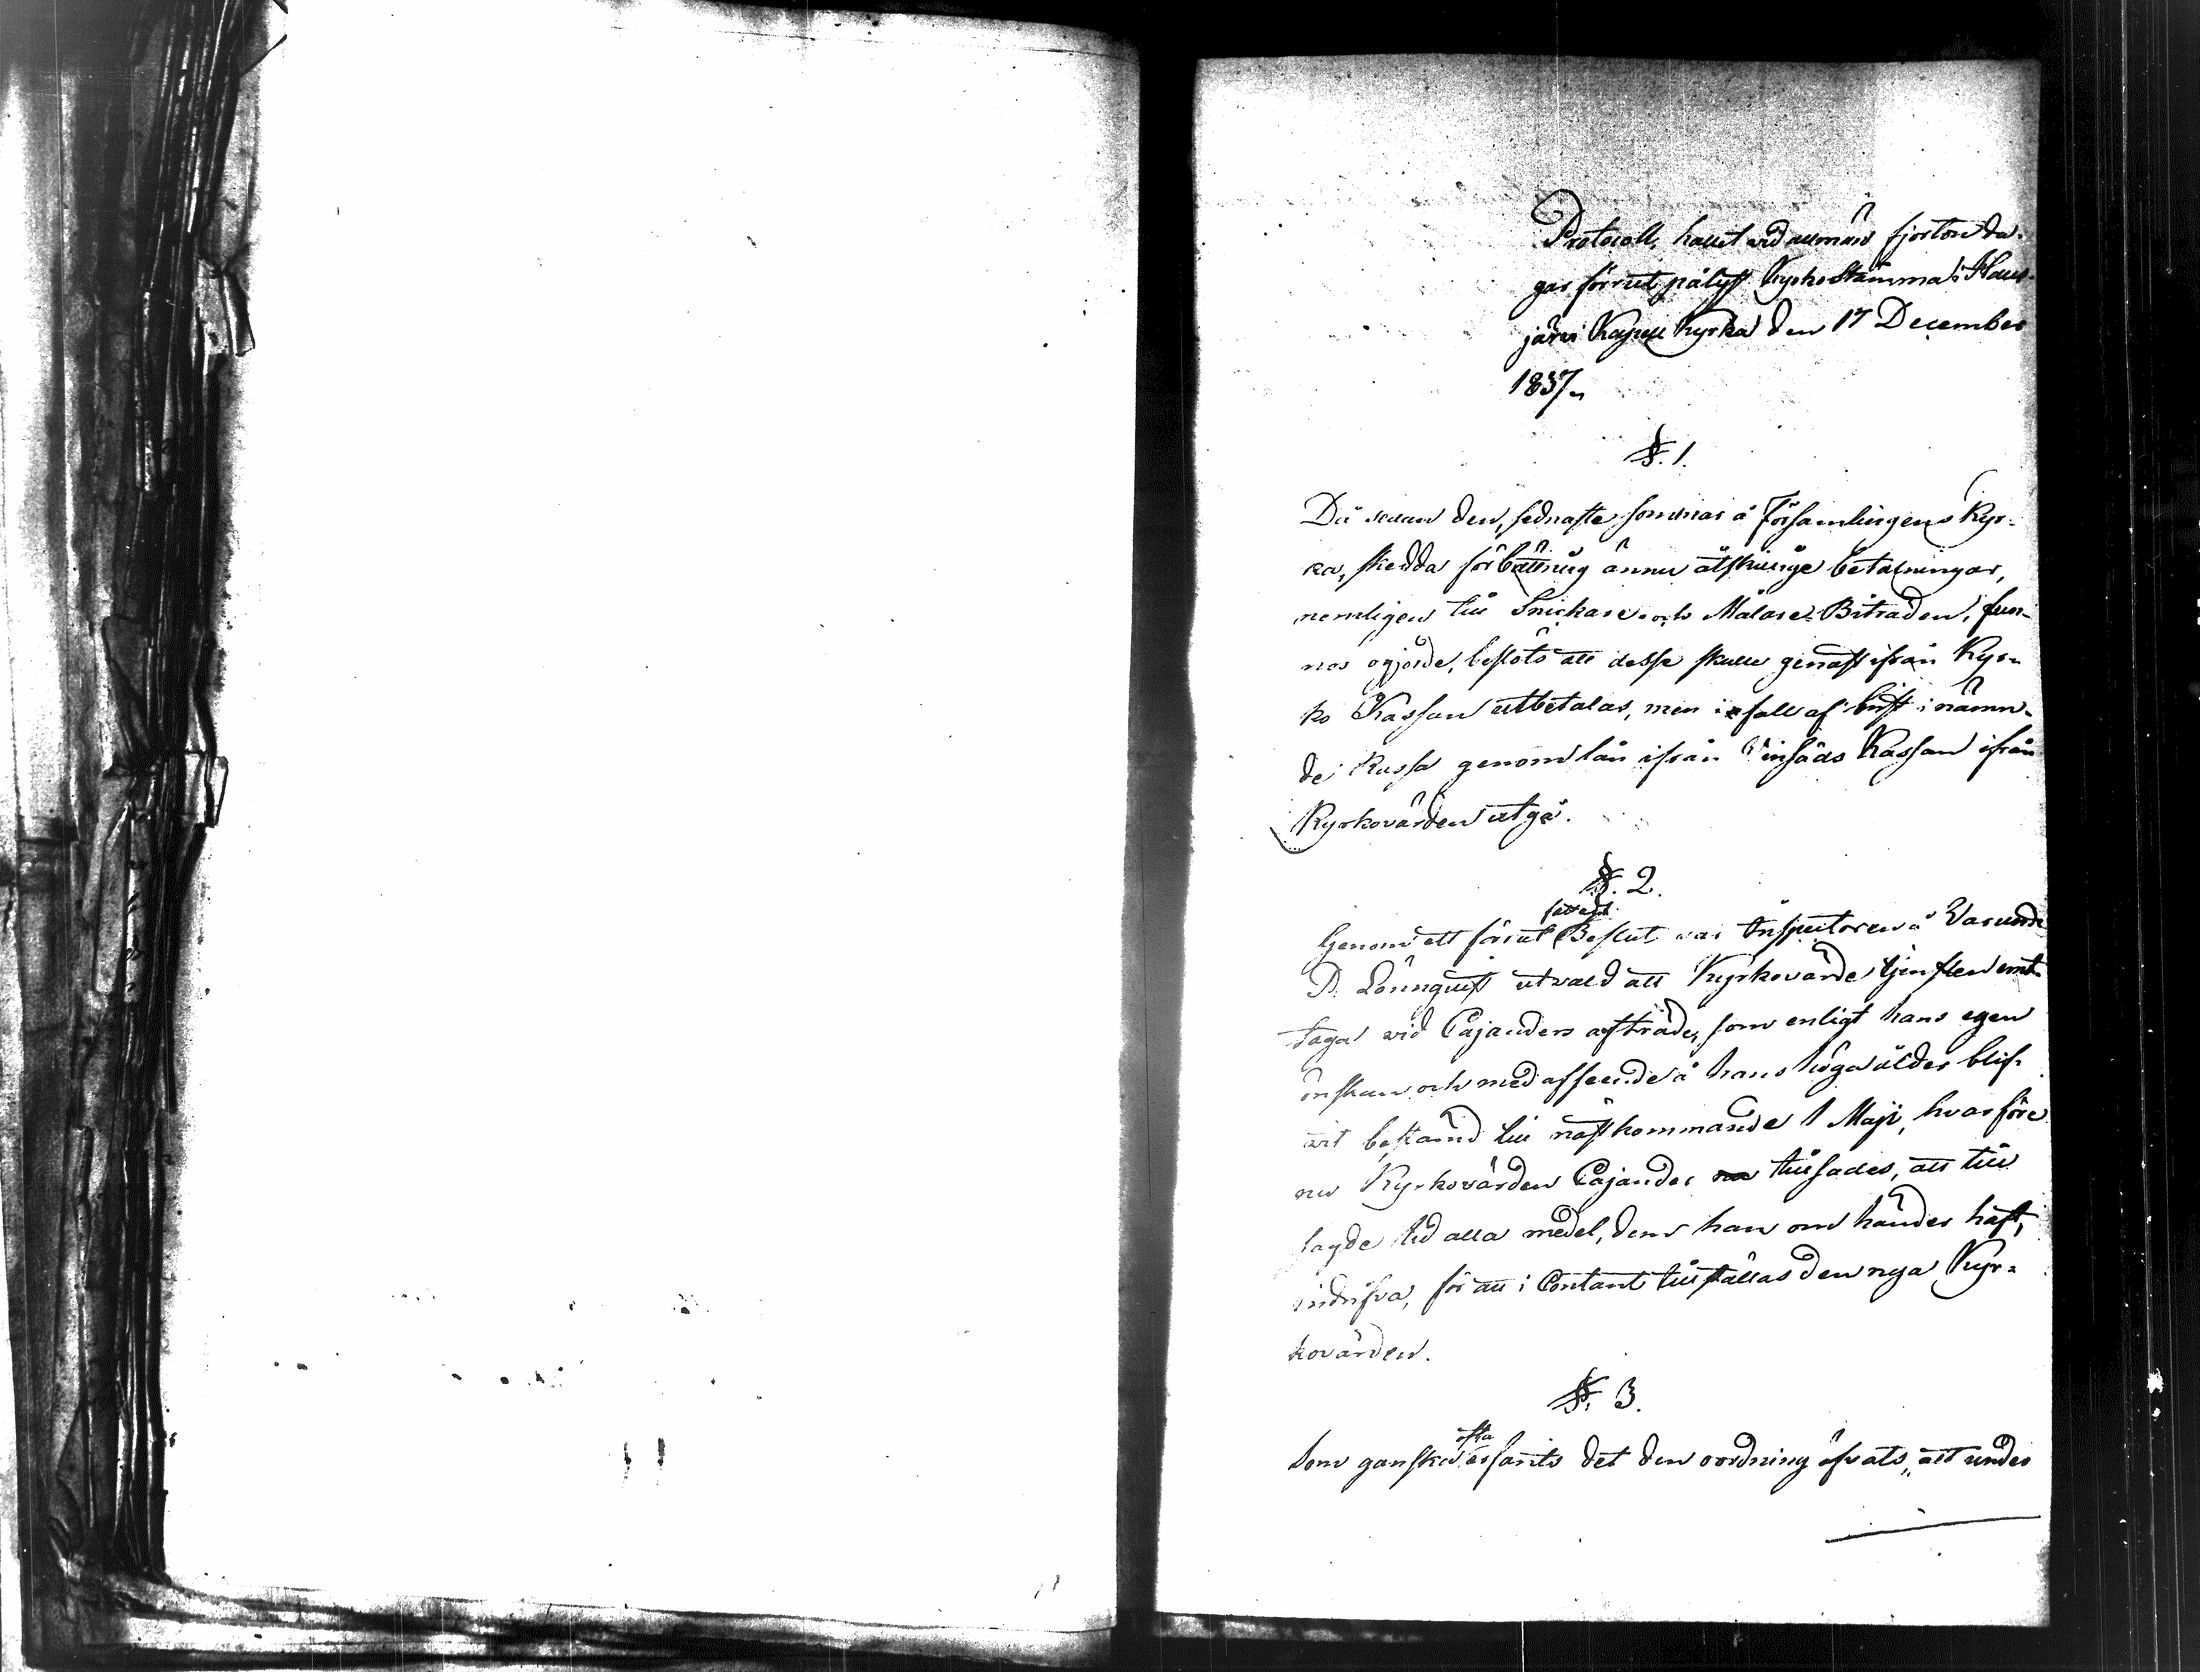 Protocoll, hållet vid allmän fjorton da-
gar förrut pålyst KyrkoStämma i Haus-
järvi Kapell Kyrka den 17 December
1837.
§. 1.
Då sedan den, sednaste sommar å Församlingens Kyr-
ka, skedda förbättring ännu åtskillige betalningar,
nemligen till Snickare och Målare-Biträden, fun-
nos ogjorde, beslöts att desse skulle genast ifrån Kyr-
ko Kassan utbetalas, men i fall af brist i nämn-
de Kassa genom lån ifrån Vinsäds Kassan ifrån
Kyrkovärden utgå.
§. 2.
fattadt
Genom ett förut Beslut var Inspectoren å
P. Lönnquist utvald att Kyrkovärde tjensten emot-
taga vid Cajanders afträde, som enligt hans egen
önskan och med afseende å hans höga ålder blif-
vit bestämd till nästkommande 1 Maji, hvarföre
nu Kyrkovärden Cajander tillsades, att till
sagde tid alla medel, dem han om händer haft,
indrifva, för att i Contant tillställas den nya Kyr-
kovärden.
§. 3.
ofta
Som ganska det den oordning öfvats, att under